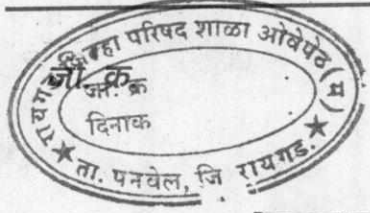 रायगड जिल्हा परिषद शाळा ओवेपेठ (म)
जा. क्र
जा. क्र
दिनाक
ता. पनवेल, जि रायगड.